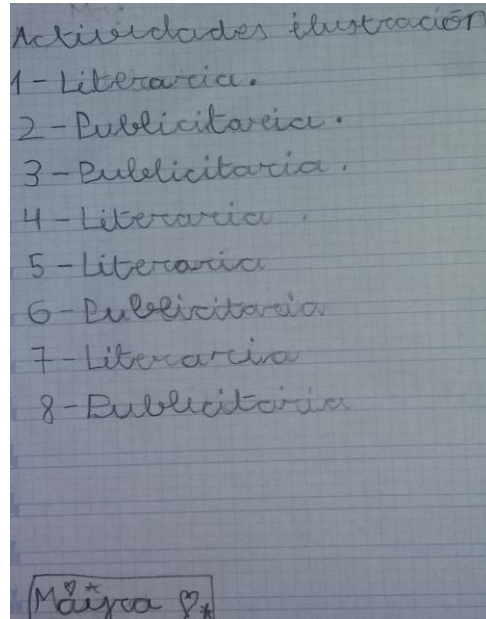 Actividades ilustración
1-Literaria.
2-Publicitaria.
3-Publicitaria.
4-Literaria.
5-Literaria
6-Publicitaria
7-Literaria
8-Publicitaria